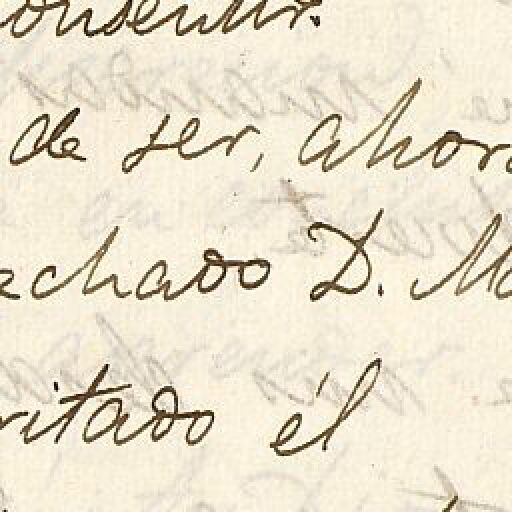 onsentir.
de ser, ahora
echado D. Ma
ritado él